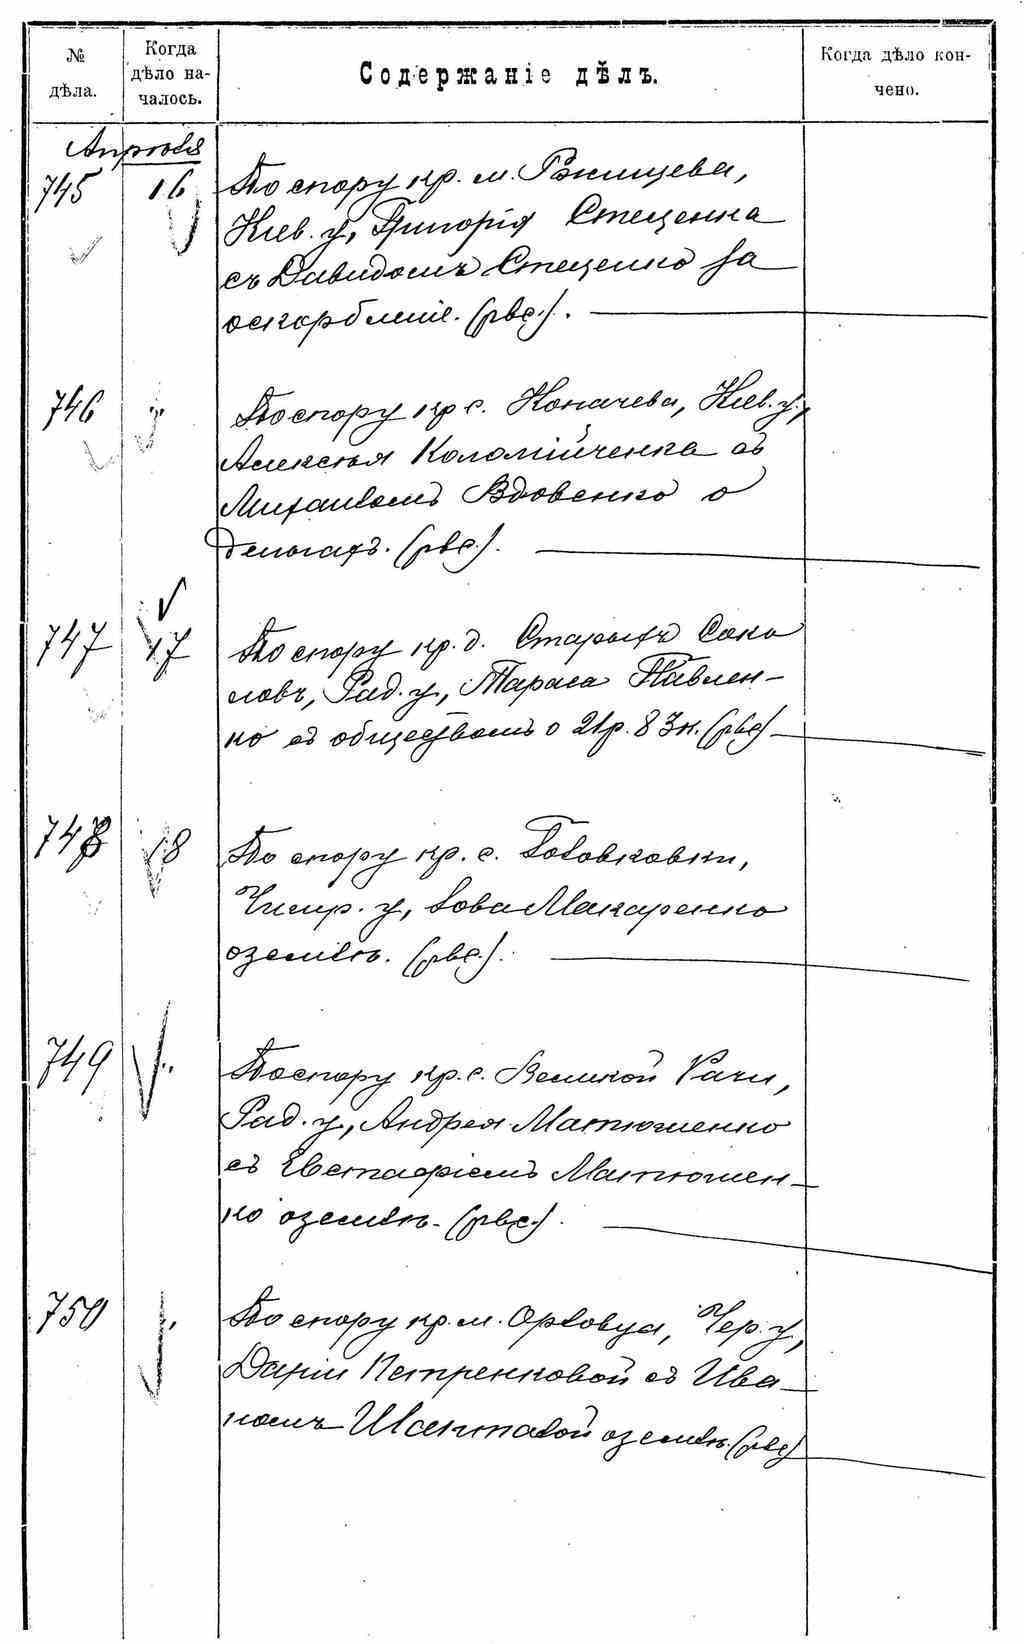 № дѣла.
Когда дѣло началось.
Содержаніе дѣлъ.
Когда дѣло кончено.
Апрѣля
745 16 По спору кр. м. Ржищева,
Кіев. у., Григорія Стеценка
съ Давидомъ Стеценко за
оскорбленіе. (рвс.).
746 " По спору кр. с. Копачева, Кіев. у.,
Алексѣя Коломійченка съ
Михаиломъ Вдовенко о
деньгахъ. (рвс.).
747 17 По спору кр. д. Старыхъ Соко
ловъ, Рад. у., Тараса Павлен-
ко съ обществомъ о 21р. 83к. (рвс)
748 18 По спору кр. с. Головковки,
Чигир. у., Іова Макаренко
о землѣ. (рвс.).
749 " По спору кр. с. Великой Рачи,
Рад. у., Андрея Матюшенко
съ Евстафіемъ Матюшен-
ко о землѣ. (рвс.).
750 " По спору кр. м. Орловца, Чер. у.,
Даріи Петренковой съ Ива-
номъ Шапталой о землѣ. (рвс)